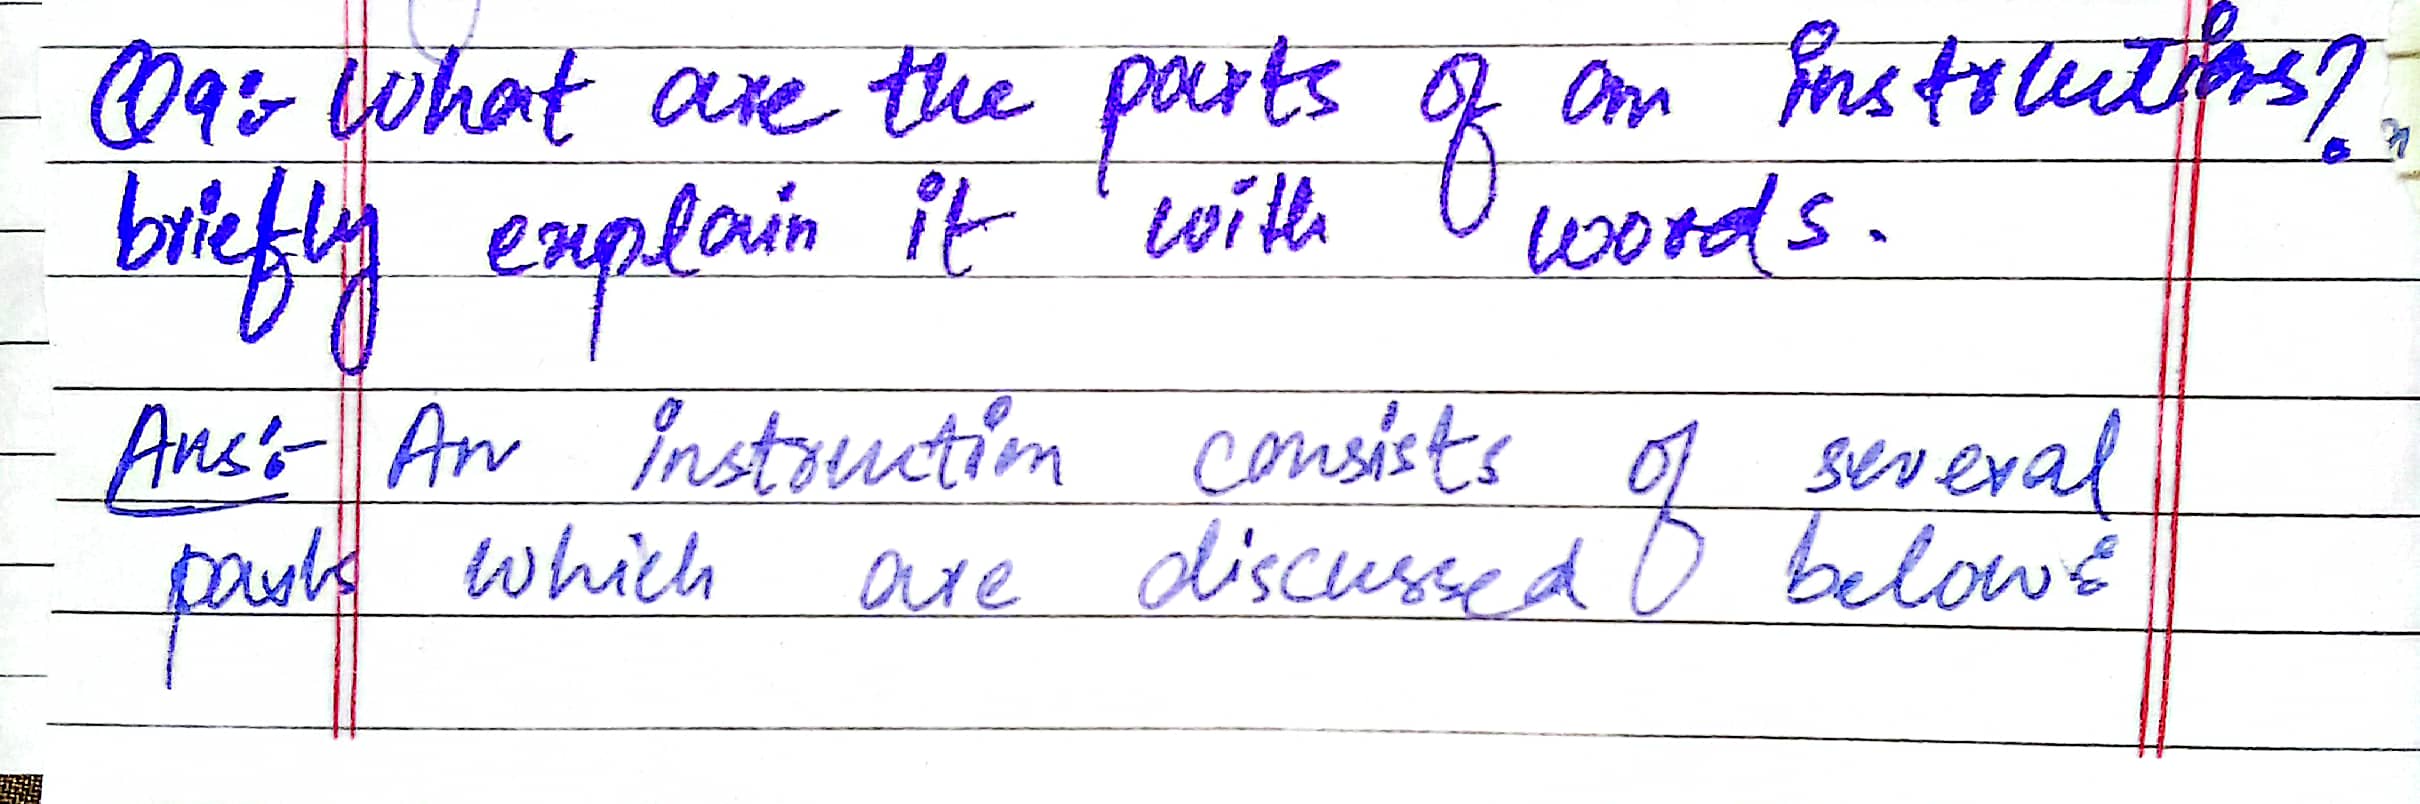 Q9:- What are the parts of an instructions?
briefly explain it with words.
Ans:- An instruction consists of several
parts which are discussed below: